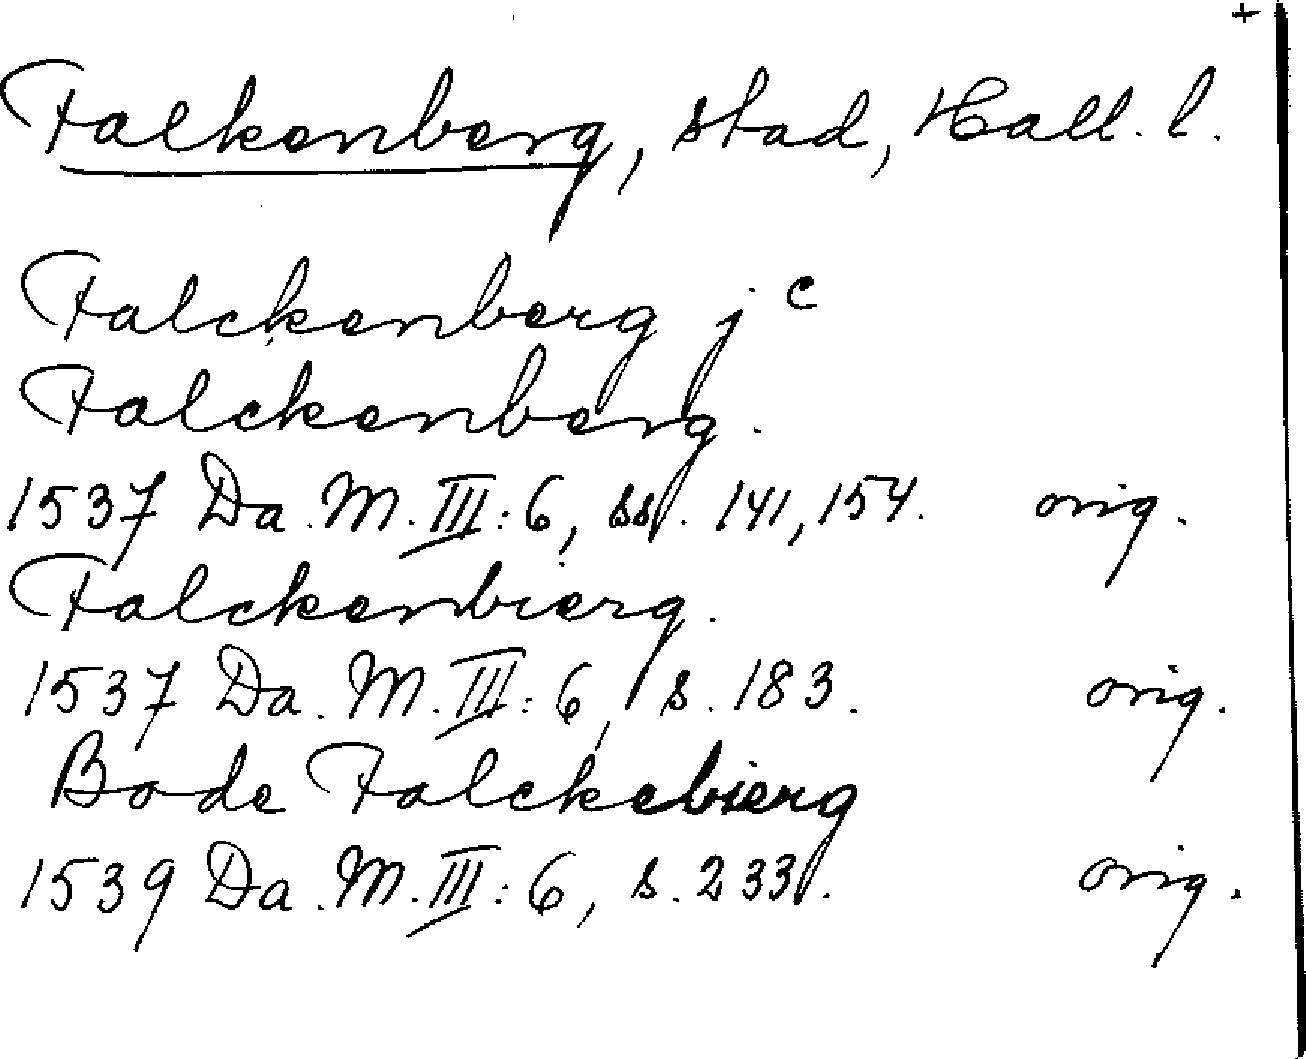 +
Falkenberg, stad, Hall. l.
Falckenberg j c
Falckenberg.
1537 Da. M. III: 6, ss. 141, 154. orig.
Falckenbierg.
1537 Da. M. III: 6, s. 183. orig.
Bode Falckebierg
1539 Da. M. III: 6, s. 233. orig.